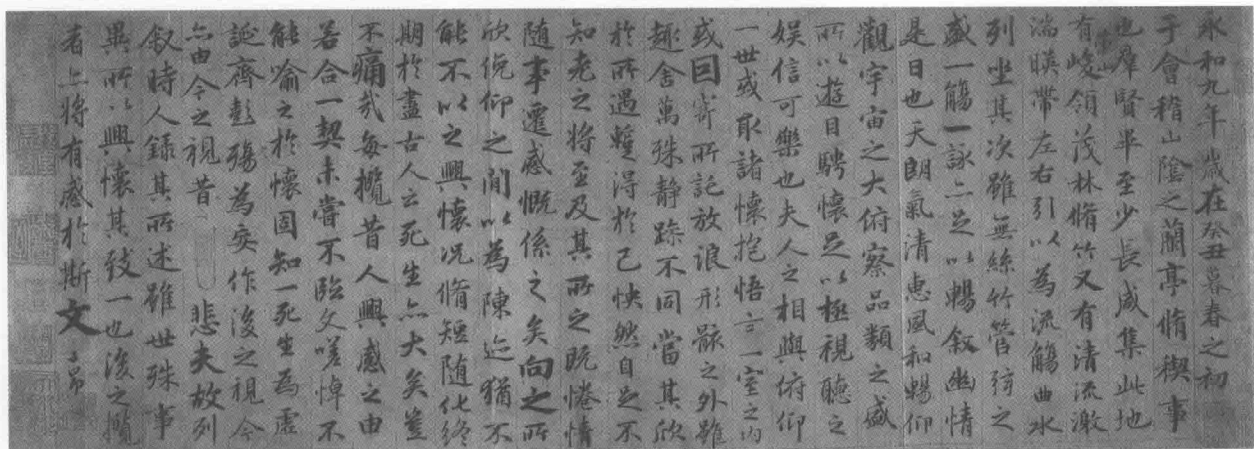 永和九年歲在癸丑暮春之初會
于會稽山陰之蘭亭脩稧事
也群賢畢至少長咸集此地
有崇山峻領茂林脩竹又有清流激
湍暎帶左右引以為流觴曲水
列坐其次雖無絲竹管弦之
盛一觴一詠亦足以暢敘幽情
是日也天朗氣清惠風和暢仰
觀宇宙之大俯察品類之盛
所以遊目騁懷足以極視聽之
娛信可樂也夫人之相與俯仰
一世或取諸懷抱悟言一室之內
或因寄所託放浪形骸之外雖
趣舍萬殊靜躁不同當其欣
於所遇蹔得於己快然自足不
知老之將至及其所之既惓情
隨事遷感慨係之矣向之所
欣俛仰之間以為陳迹猶不
能不以之興懷況脩短隨化終
期於盡古人云死生亦大矣豈
不痛哉每攬昔人興感之由
若合一契未嘗不臨文嗟悼不
能喻之於懷固知一死生為虛
誕齊彭殤為妄作後之視今
亦由今之視昔悲夫故列
敘時人錄其所述雖世殊事
異所以興懷其致一也後之攬
者亦將有感於斯文 子昂